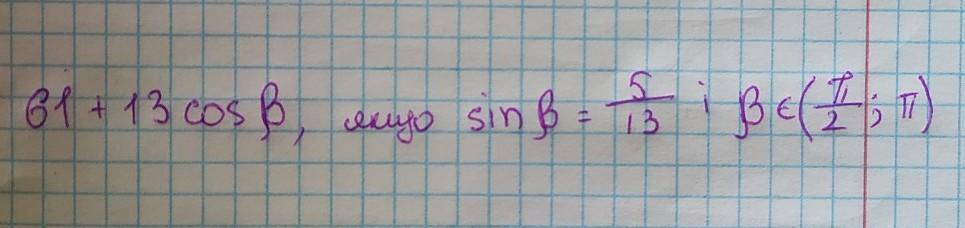 61 + 13 cos β, якщо sin β = 5/13 і β ∈ (π/2; π)